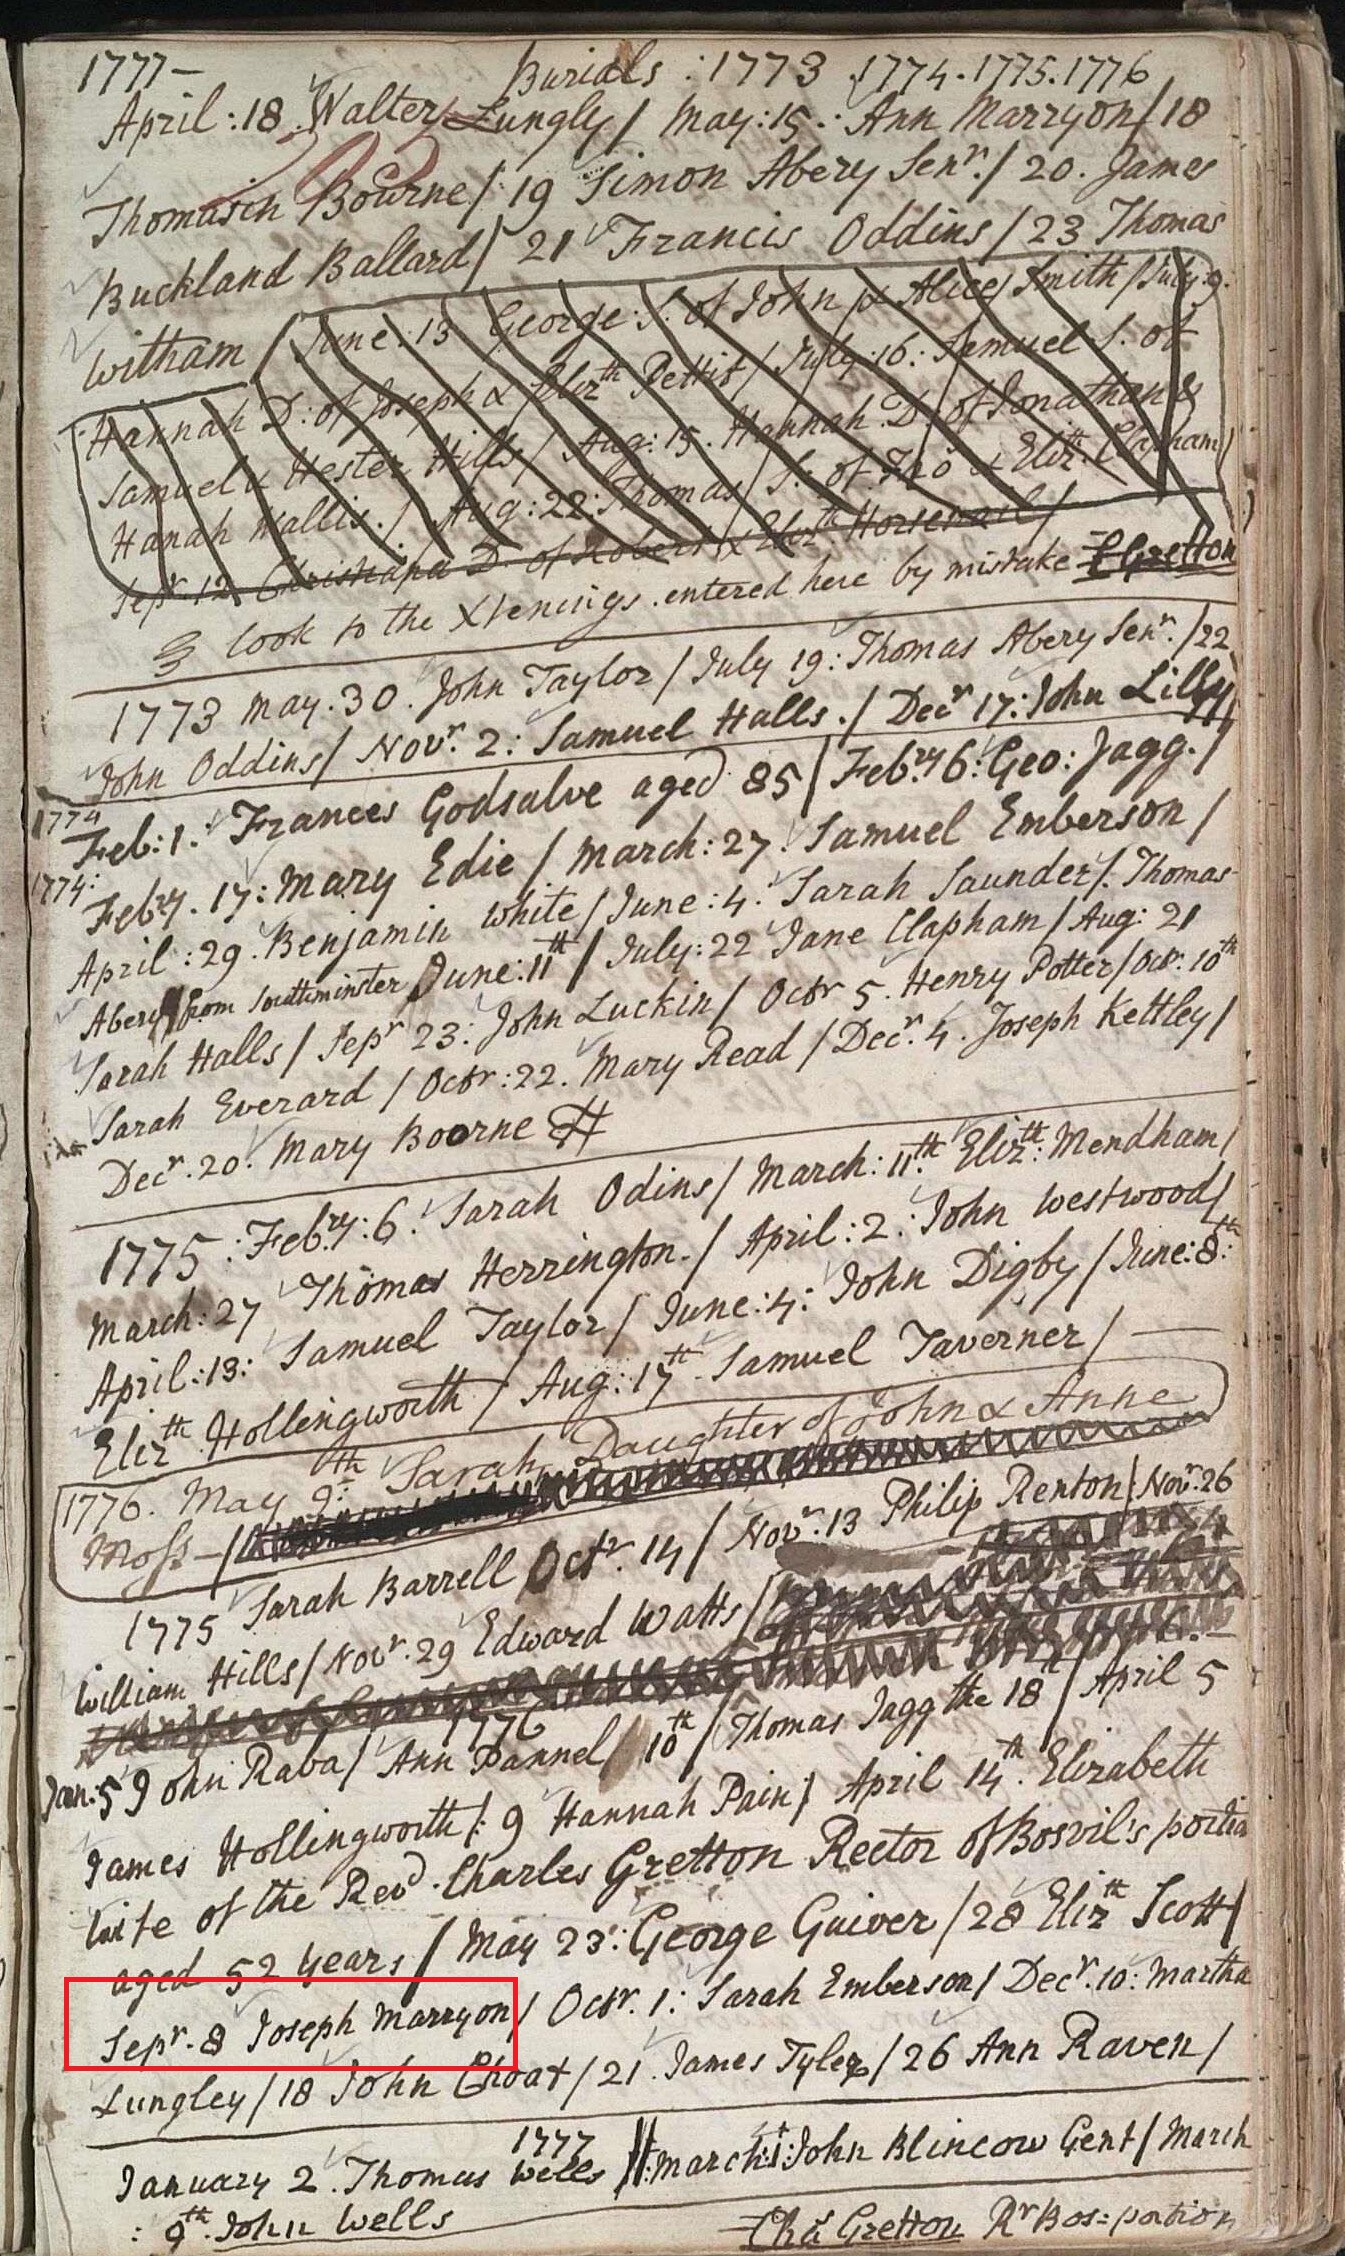 1777 — Burials : 1773 . 1774 . 1775 . 1776
April : 18 Walter Lungly / May : 15 . Ann Marryon / 18
Thomasin Bourne / 19 Simon Abery Senr. / 20 . James
Buckland Ballard / 21 Francis Oddins / 23 Thomas
Witham / June : 13 George : S. of John & Alice Smith / July : 9 .
Hannah D : of Joseph & Elizth Pettit / July : 16 : Samuel S. of
Samuel & Hester Hills / Aug : 15 . Hannah D. of Jonathan &
Hanah Wallis . / Aug : 22 : Thomas S : of Jno & Eliz : Clapham /
Sepr. 12 Christiana D of Robert & Elizth Horsenail /
look to the Xtenings . entered here by mistake C Gretton
1773 May . 30 . John Taylor / July 19 : Thomas Abery Senr. / 22
John Oddins / Novr. 2 : Samuel Halls . / Decr 17 : John Lilly
1774
Feb : 1 . Frances Godsalve aged 85 / Febry 6 : Geo : Jagg . /
1774 :
Febry . 17 : Mary Edie / March : 27 Samuel Emberson /
April : 29 . Benjamin White / June : 4 . Sarah Saunders / . Thomas
Abery from Southminster June : 11th / July : 22 Jane Clapham / Aug : 21
Sarah Halls / Sepr 23 : John Luckin / Octr 5 . Henry Potter / Octr. 10th
Sarah Everard / Octr : 22 . Mary Read / Decr. 4 . Joseph Kettley /
Decr. 20 . Mary Boorne
1775 : Febry : 6 . Sarah Odins / March : 11th Elizth : Mendham /
March : 27 Thomas Herrington . / April : 2 : John Westwood /
April : 13 : Samuel Taylor / June : 4 : John Digby / June : 8th :
Elizth Hollingworth / Aug : 17th Samuel Taverner / —
1776 . May 9th : Sarah Daughter of John & Anne
Moss — /
1775 Sarah Barrell Octr. 14 / Novr. 13 Philip Renton / Novr. 26
William Hills / Novr. 29 Edward Watts /
1776
Jan : 5 John Raba / Ann Pannel / 10th / Thomas Jagg the 18th / April 5
James Hollingworth / : 9 Hannah Pain / April 14th . Elizabeth
wife of the Revd . Charles Gretton Rector of Bosvil's portion
aged 52 years / May 23 : George Guiver / 28 Elizth Scott /
Sepr . 8 Joseph Marryon / Octr. 1 : Sarah Emberson / Decr . 10 : Martha
Lungley / 18 John Choat / 21 . James Tyler / 26 Ann Raven /
1777
January 2 . Thomas Wells // March : 1 : John Blincow Gent / March
: 9th . John Wells
Chs Gretton Rr Bos = portion